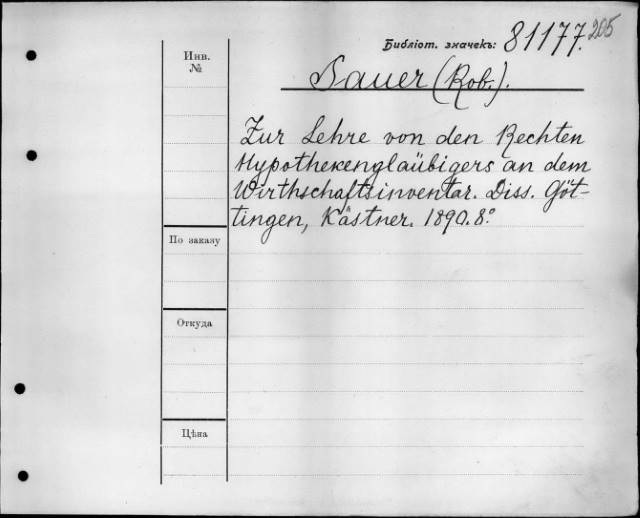 205
Библіот. значекъ: 81177.
Инв.
№
Bauer (Rob.).
Zur Lehre von den Rechten
Hypothekengläubigers an dem
Wirthschaftsinventar. Diss. Göt-
tingen, Kästner. 1890. 8º
По заказу
Откуда
Цѣна